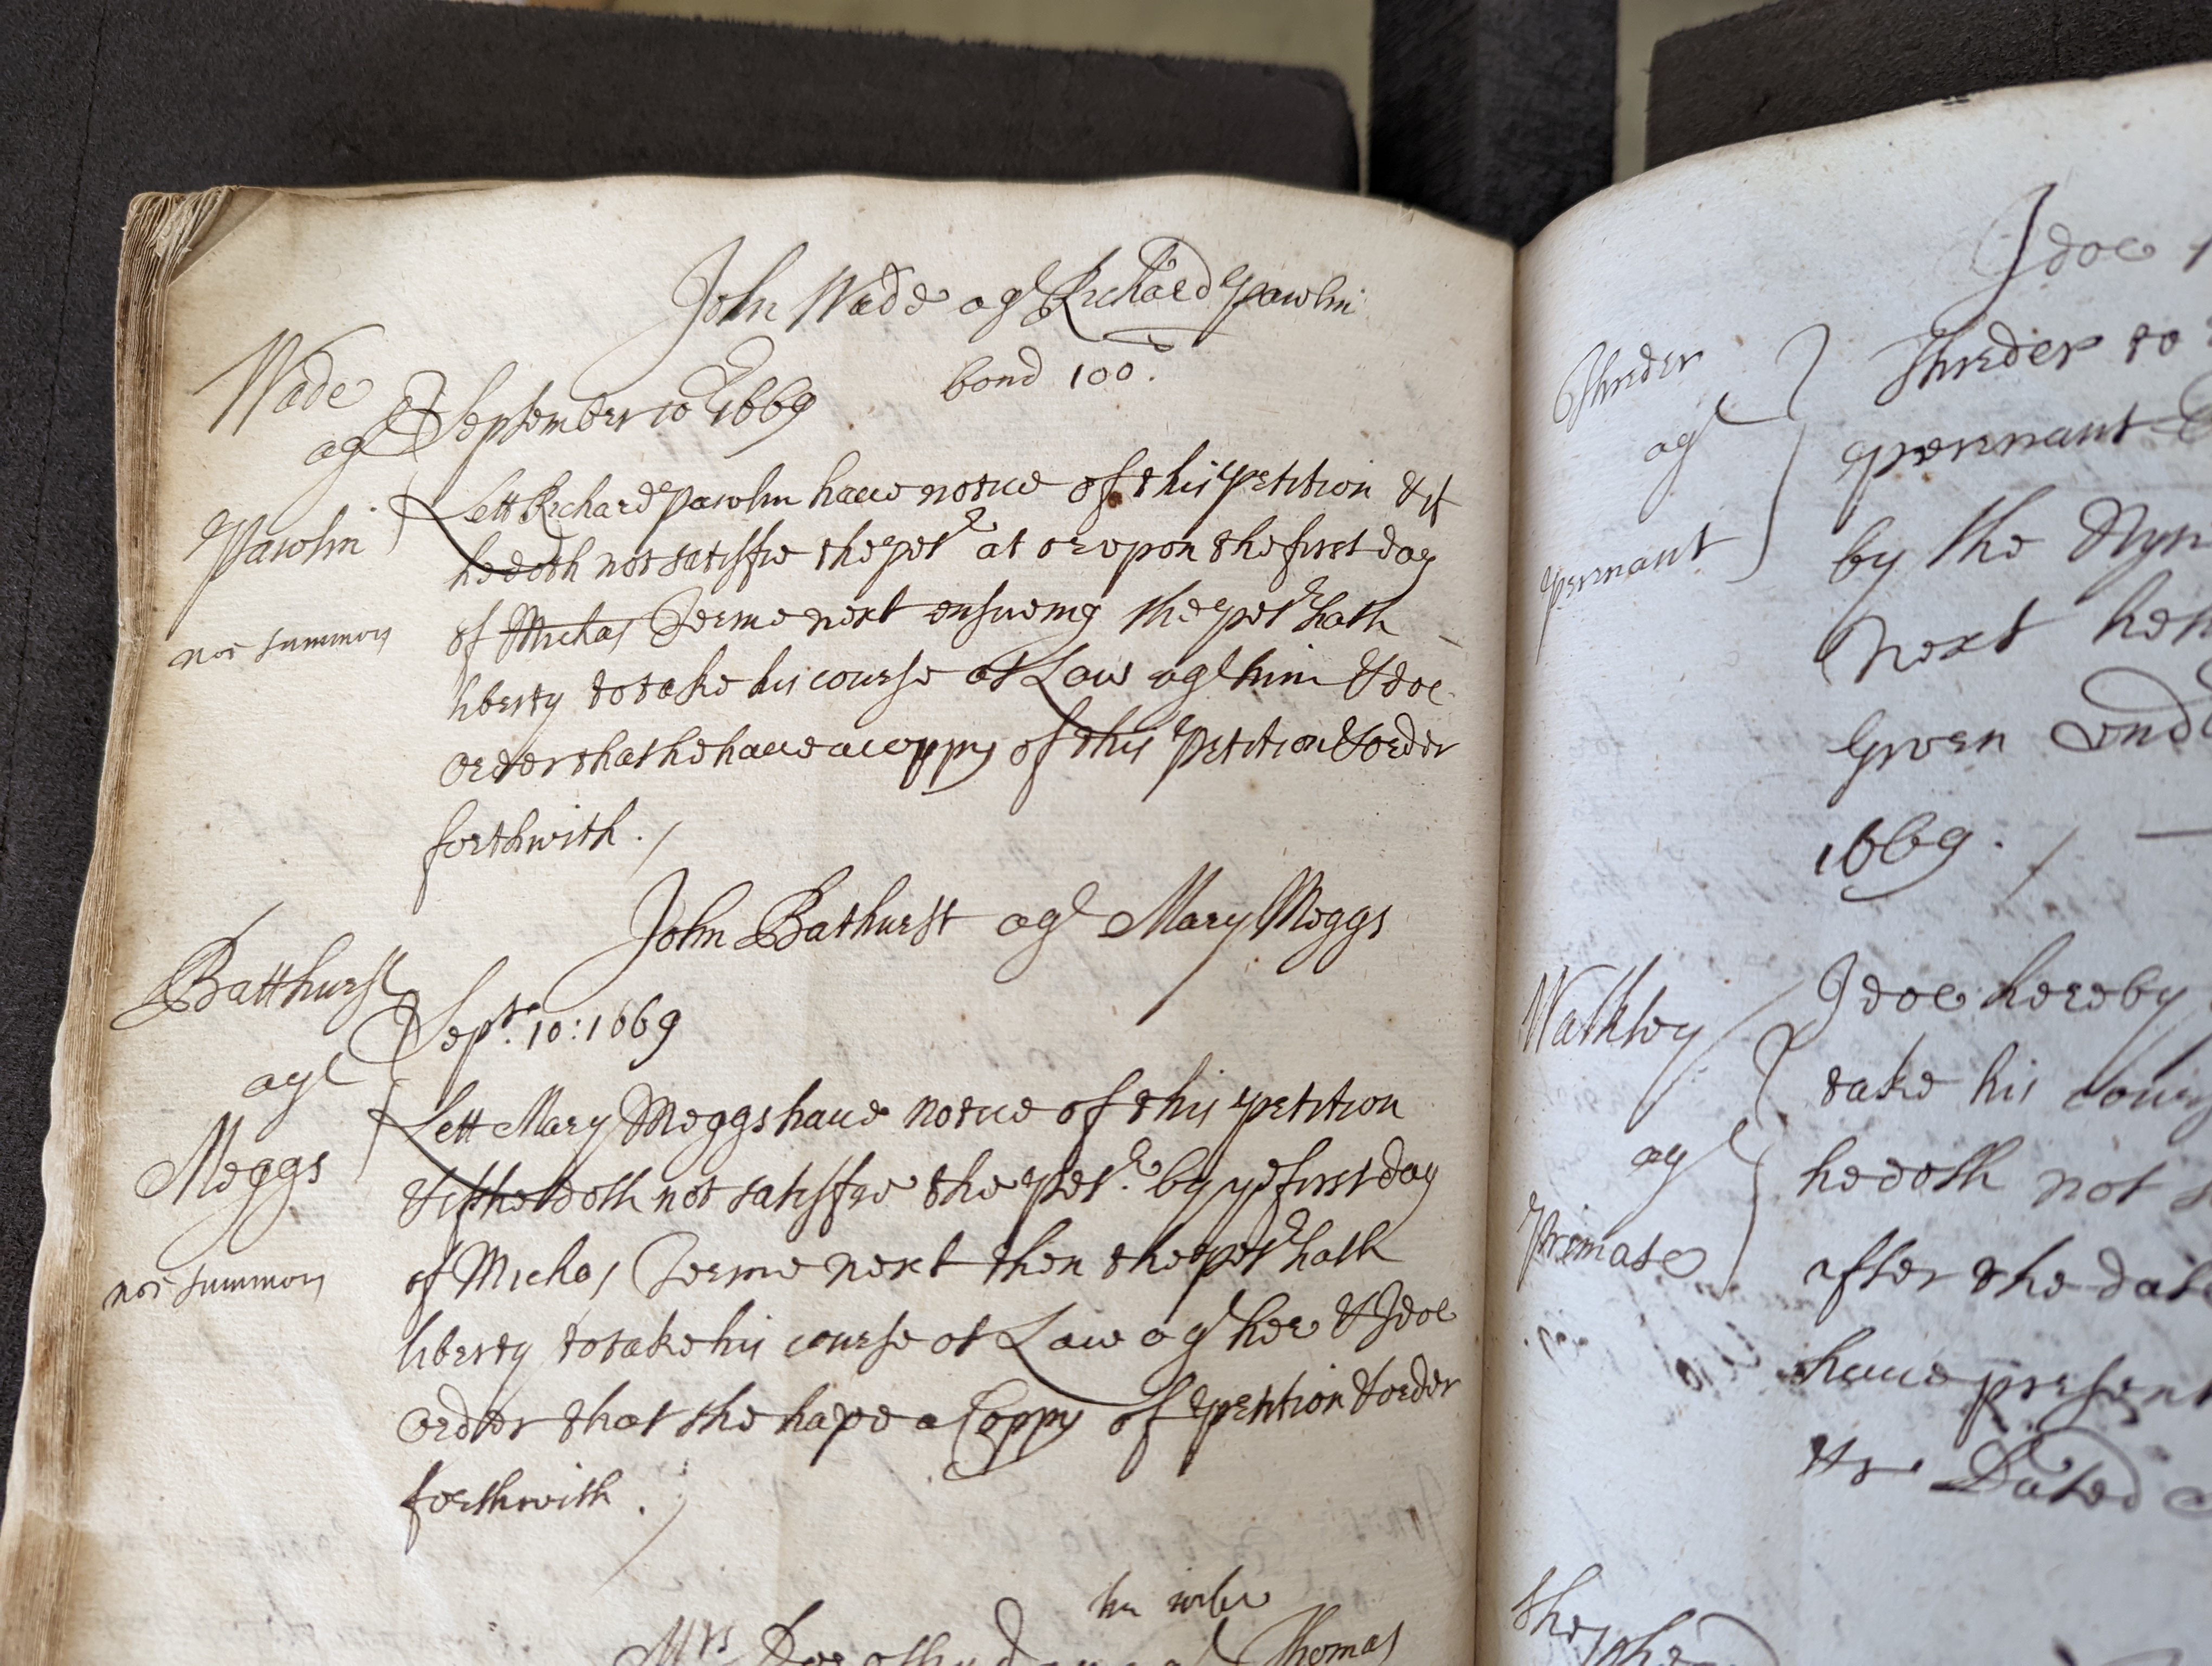 John Wade agt Richard Pawlin
bond 100li.
Wade
agt
Pawlin
no: summons
September 10th 1669
Lett Richard Pawlin haue notice of this petition & if
he doth not satisfie the petr at or vpon the first day
of Michas Terme next ensueing the petr hath
liberty to take his course at Law agt him & doe
order that he haue a coppy of this Petition & order
forthwith ./
John Bathurst agt Mary Meggs
Batthurst
agt
Meggs
no: summons
Septr. 10: 1669
Lett Mary Meggs haue notice of this petition
& if she doth not satisfie the petr. by ye first day
of Michas Terme next then the petr hath
liberty to take his course at Law agt her & I doe
order that she have a Coppy of petition & order
forthwith ./
Mrs Dorothy agt Thomas
I doe
Shreder
agt
Pennant
Shreder to
Pennant
by the
Next
Given vnd
1669 ./
Walkley
agt
Primate
I doe hereby
take his cour
he doth not s
after the dat
haue present
Dated